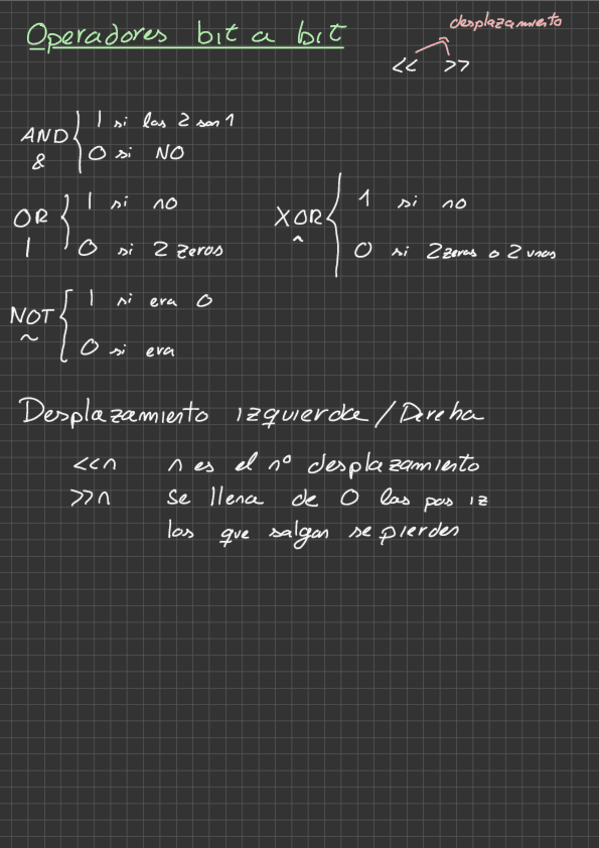 Operadores bit a bit
desplazamiento
<< >>
AND & 1 si las 2 son 1
0 si NO
OR | 1 si no
0 si 2 zeros
XOR ^ 1 si no
0 si 2 zeros o 2 unos
NOT ~ 1 si era 0
0 si era
Desplazamiento izquierda / Direha
<<n n es el nº desplazamiento
>>n Se llena de 0 las pos iz
los que salgan se pierden